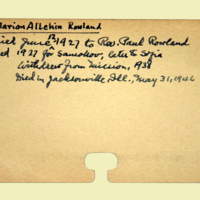 Marion Allchin Rowland
June 1927 to Rev. Paul Rowland
1927 for Samokov, later to Sofia
Withdrew from Mission, 1938
Died in Jacksonville, Ill., May 31, 1946